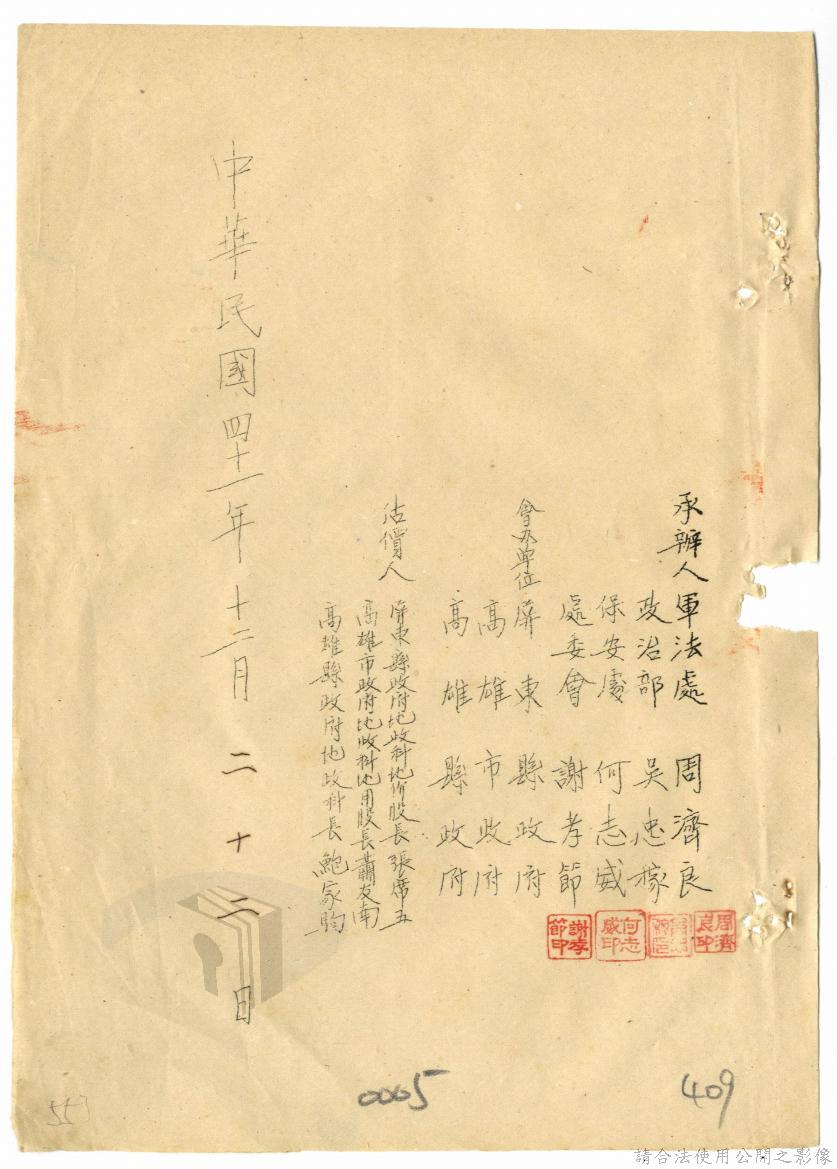 承辦人軍法處 周濟良
政治部 吳忠稼
保安處 何志威
處委會 謝孝節
周濟良印
何志威印
謝孝節印
會办單位屏東縣政府
高雄市政府
高雄縣政府
估價人屏東縣政府地政科地价股長張席五
高雄市政府地政科地用股長蕭友南
高雄縣政府地政科長鮑家驹
中華民國四十一年十二月二十二日
409
0005
553
請合法使用公開之影像